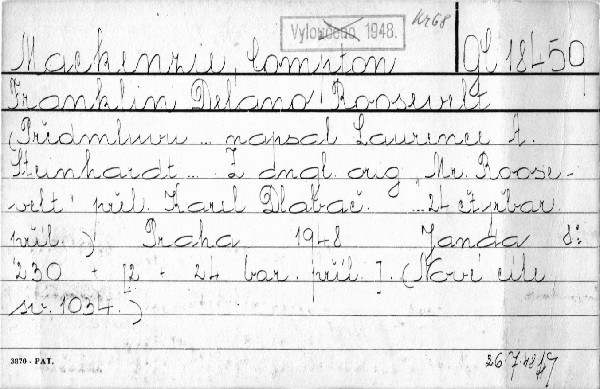 Vyloučeno 1948. Kr68
Mackenzie, Compton Gl 18450
Franklin Delano Roosevelt
(Předmluvu ... napsal Laurence A.
Steinhardt ... Z angl. orig. „Mr. Roose-
velt" přel. Karel Dlabač. ... 24 čt. bar.
příl.) Praha 1948 Janda 8:
230 + [2 + 24 bar. příl.]. (Nové cíle,
sv. 1034.)
3870 - PAT. 26.7.48